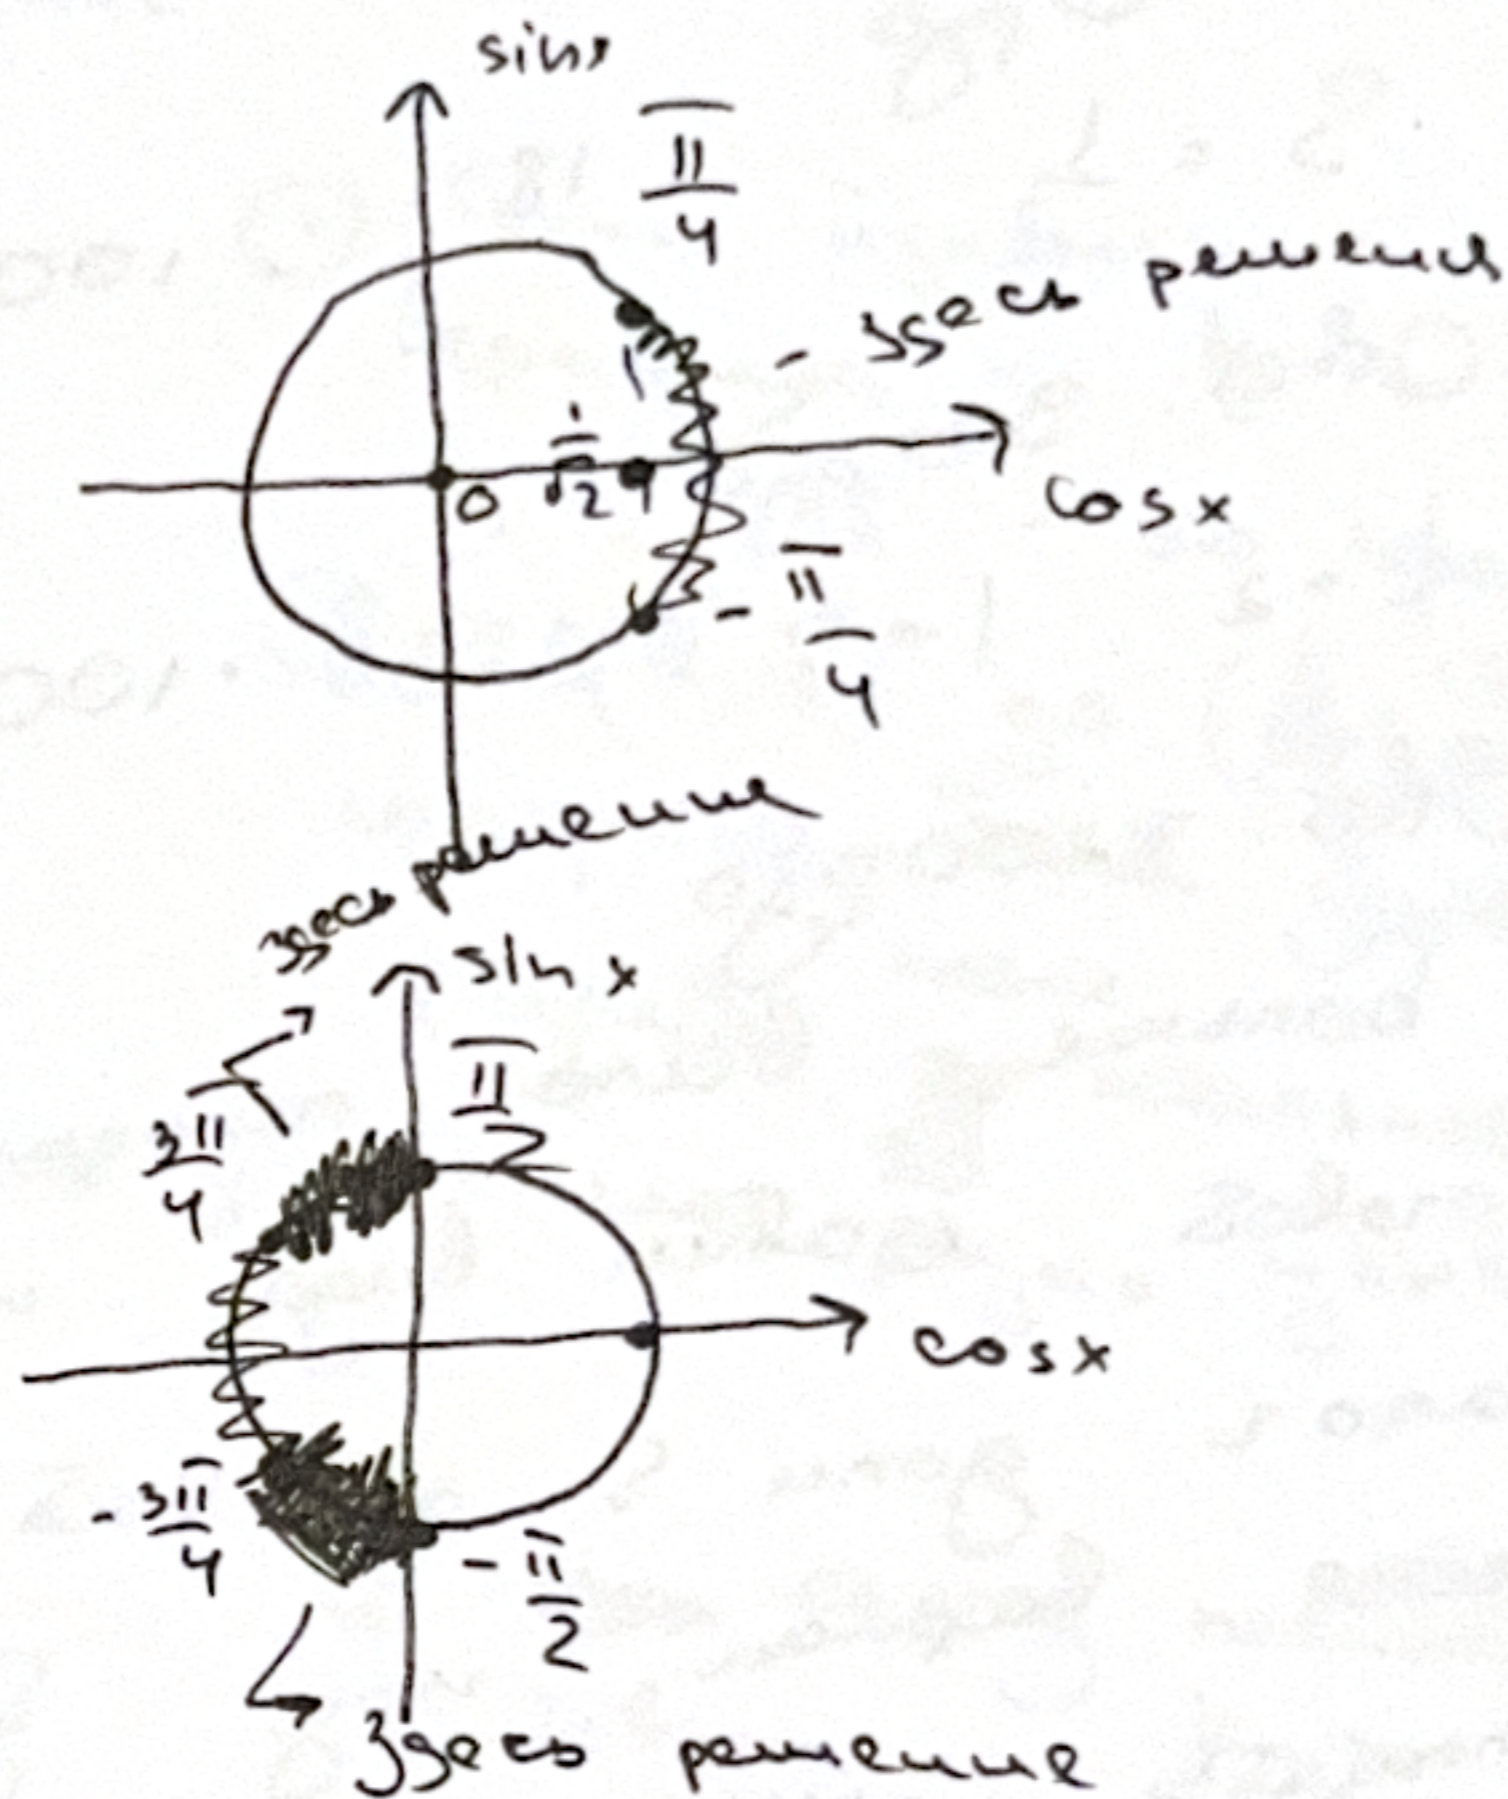 sinx
π/4
- здесь решения
1/√2
0
cos x
- π/4
здесь решение
sin x
π/2
3π/4
cosx
- 3π/4
- π/2
Здесь решение